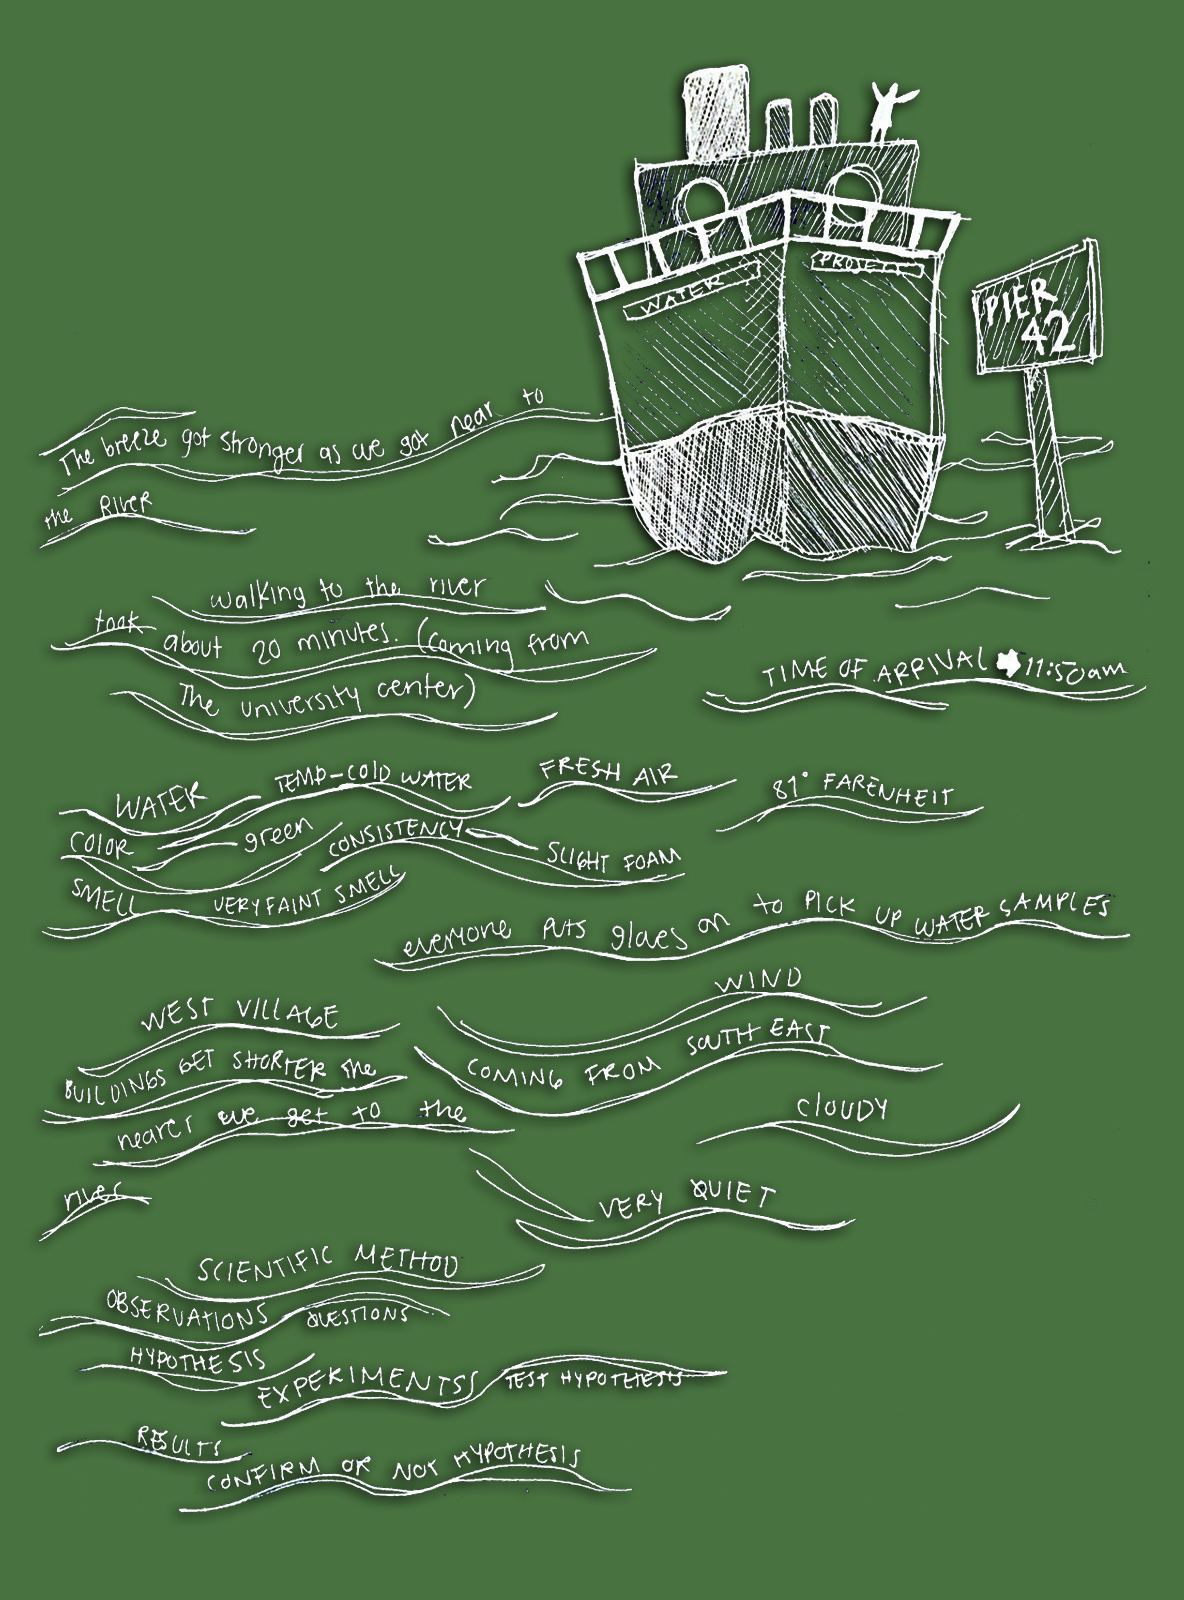 WATER
PROJECT
PIER
42
The breeze got stronger as we got near to
the RIVER
walking to the river
took about 20 minutes. (coming from
The university center)
TIME OF ARRIVAL 11:50am
WATER TEMP-COLD WATER
FRESH AIR
81° FARENHEIT
COLOR green
CONSISTENCY SLIGHT FOAM
SMELL VERY FAINT SMELL
everyone puts gloves on to PICK UP WATER SAMPLES
WIND
COMING FROM SOUTH EAST
WEST VILLAGE
BUILDINGS GET SHORTER the
nearer we get to the
river
CLOUDY
VERY QUIET
SCIENTIFIC METHOD
OBSERVATIONS QUESTIONS
HYPOTHESIS
EXPERIMENTSS TEST HYPOTHESIS
RESULTS
CONFIRM OR NOT HYPOTHESIS